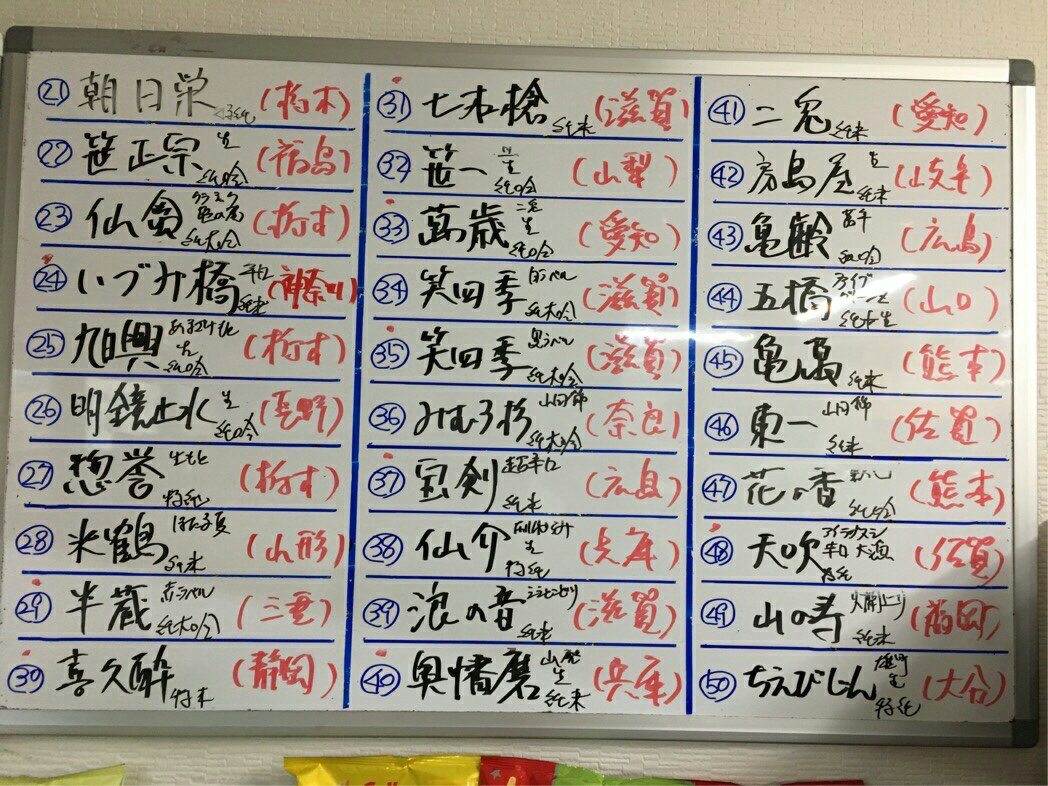 ㉑ 朝日栄 特純 (栃木)
㉒ 笹正宗 生 純吟 (福島)
㉓ 仙禽 亀の尾 純大吟 (栃木)
㉔ いづみ橋 純米 (神奈川)
㉕ 旭興 生 純吟 (栃木)
㉖ 明鏡止水 生 純吟 (長野)
㉗ 惣誉 生もと 特純 (栃木)
㉘ 米鶴 純米 (山形)
㉙ 半蔵 赤ラベル 純大吟 (三重)
㉚ 喜久酔 特米 (静岡)
㉛ 七本槍 純米 (滋賀)
㉜ 笹一 生 純吟 (山梨)
㉝ 萬歳 生 純吟 (愛知)
㉞ 笑四季 純大吟 (滋賀)
㉟ 笑四季 黒ラベル 純大吟 (滋賀)
㊱ みむろ杉 山田錦 純大吟 (奈良)
㊲ 宝剣 超辛口 純米 (広島)
㊳ 仙介 生 特純 (兵庫)
㊴ 浪の音 純米 (滋賀)
㊵ 奥播磨 山廃 生 純米 (兵庫)
㊶ 二兎 純米 (愛知)
㊷ 房島屋 生 純米 (岐阜)
㊸ 亀齢 純吟 (広島)
㊹ 五橋 純米生 (山口)
㊺ 亀萬 純米 (熊本)
㊻ 東一 山田錦 純米 (佐賀)
㊼ 花の香 純吟 (熊本)
㊽ 天吹 辛口 特純 (佐賀)
㊾ 山の寿 純米 (福岡)
㊿ ちえびじん 雄町 生 特純 (大分)